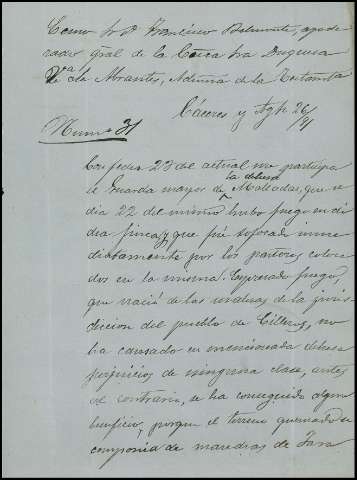 Excmo Sr D. Francisco Belmonte, apode
rado gral de la Excma Sra Duquesa
Vda de Abrantes, Admon de la Testamta
Cáceres y Agto 26/91
Numo 31
Con fecha 23 del actual me participa
el Guarda mayor de la dehesa Malladas, que el
dia 22 del mismo hubo fuego en di
cha finca, y que fué sofocado inme
diatamente por los pastores coloca
dos en la misma. Expresado fuego,
que nació de las umbrias de la juris
diccion del pueblo de Cilleros, no
ha causado en mencionada dehesa
perjuicios de ninguna clase, antes
al contrario, se ha conseguido algun
beneficio, porque el terreno quemado se
componia de maredras de Jara